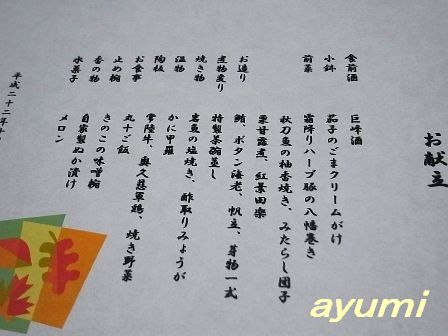 お献立
食前酒　巨峰酒
小鉢　茄子のごまクリームがけ
前菜　霜降りハーブ豚の八幡巻き
秋刀魚の柚香焼き、みたらし団子
栗甘露煮、紅葉田楽
お造り　鮪、ボタン海老、帆立、芽物一式
煮物変り　特製茶碗蒸し
焼き物　岩魚の塩焼き、酢取りみょうが
温物　かに甲羅
陶板　常陸牛、奥久慈軍鶏、焼き野菜
お食事　丸十ご飯
止め椀　きのこの味噌椀
香の物　自家製ぬか漬け
水菓子　メロン
平成二十二年十
ayumi